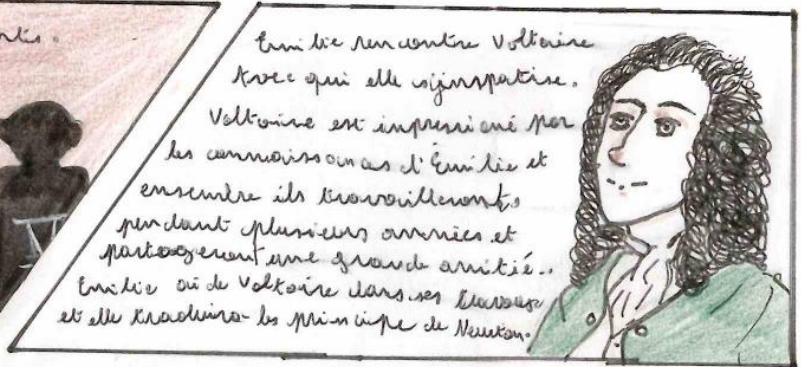 Emilie rencontre Voltaire
avec qui elle sijmpatise.
Voltaire est impressioné par
les connaissances d'Émilie et
ensemble ils travailleronts
pendant plusieurs années et
partageront une grande amitié..
Emilie aide Voltaire dans ses travaux
et elle traduira les principe de Newton.